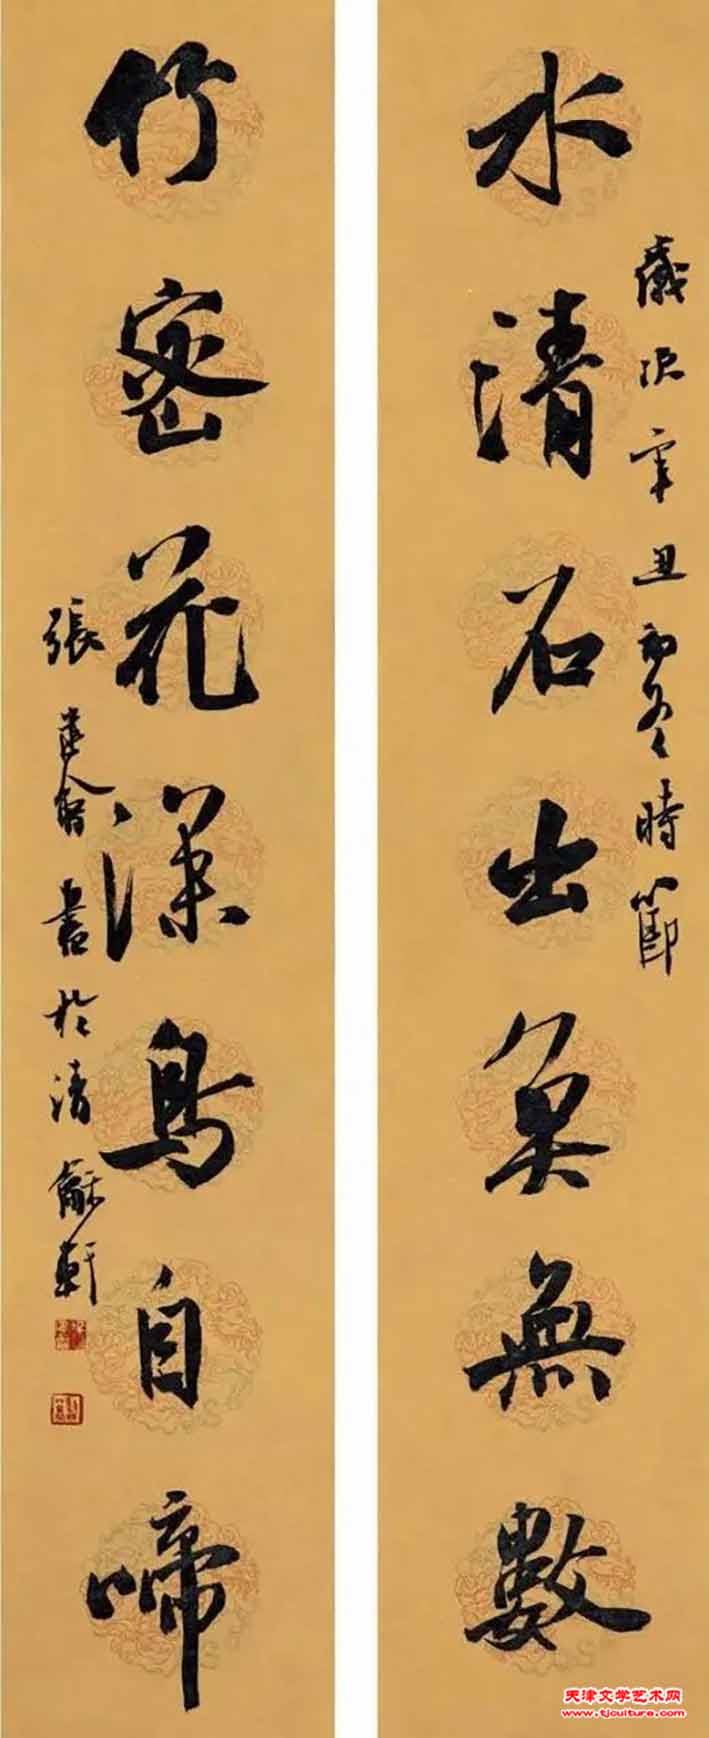 歲次辛丑初冬時節
水清石出魚無數
竹密花深鳥自啼
張建會書於清龢軒
天津文学艺术网
www.tjculture.com